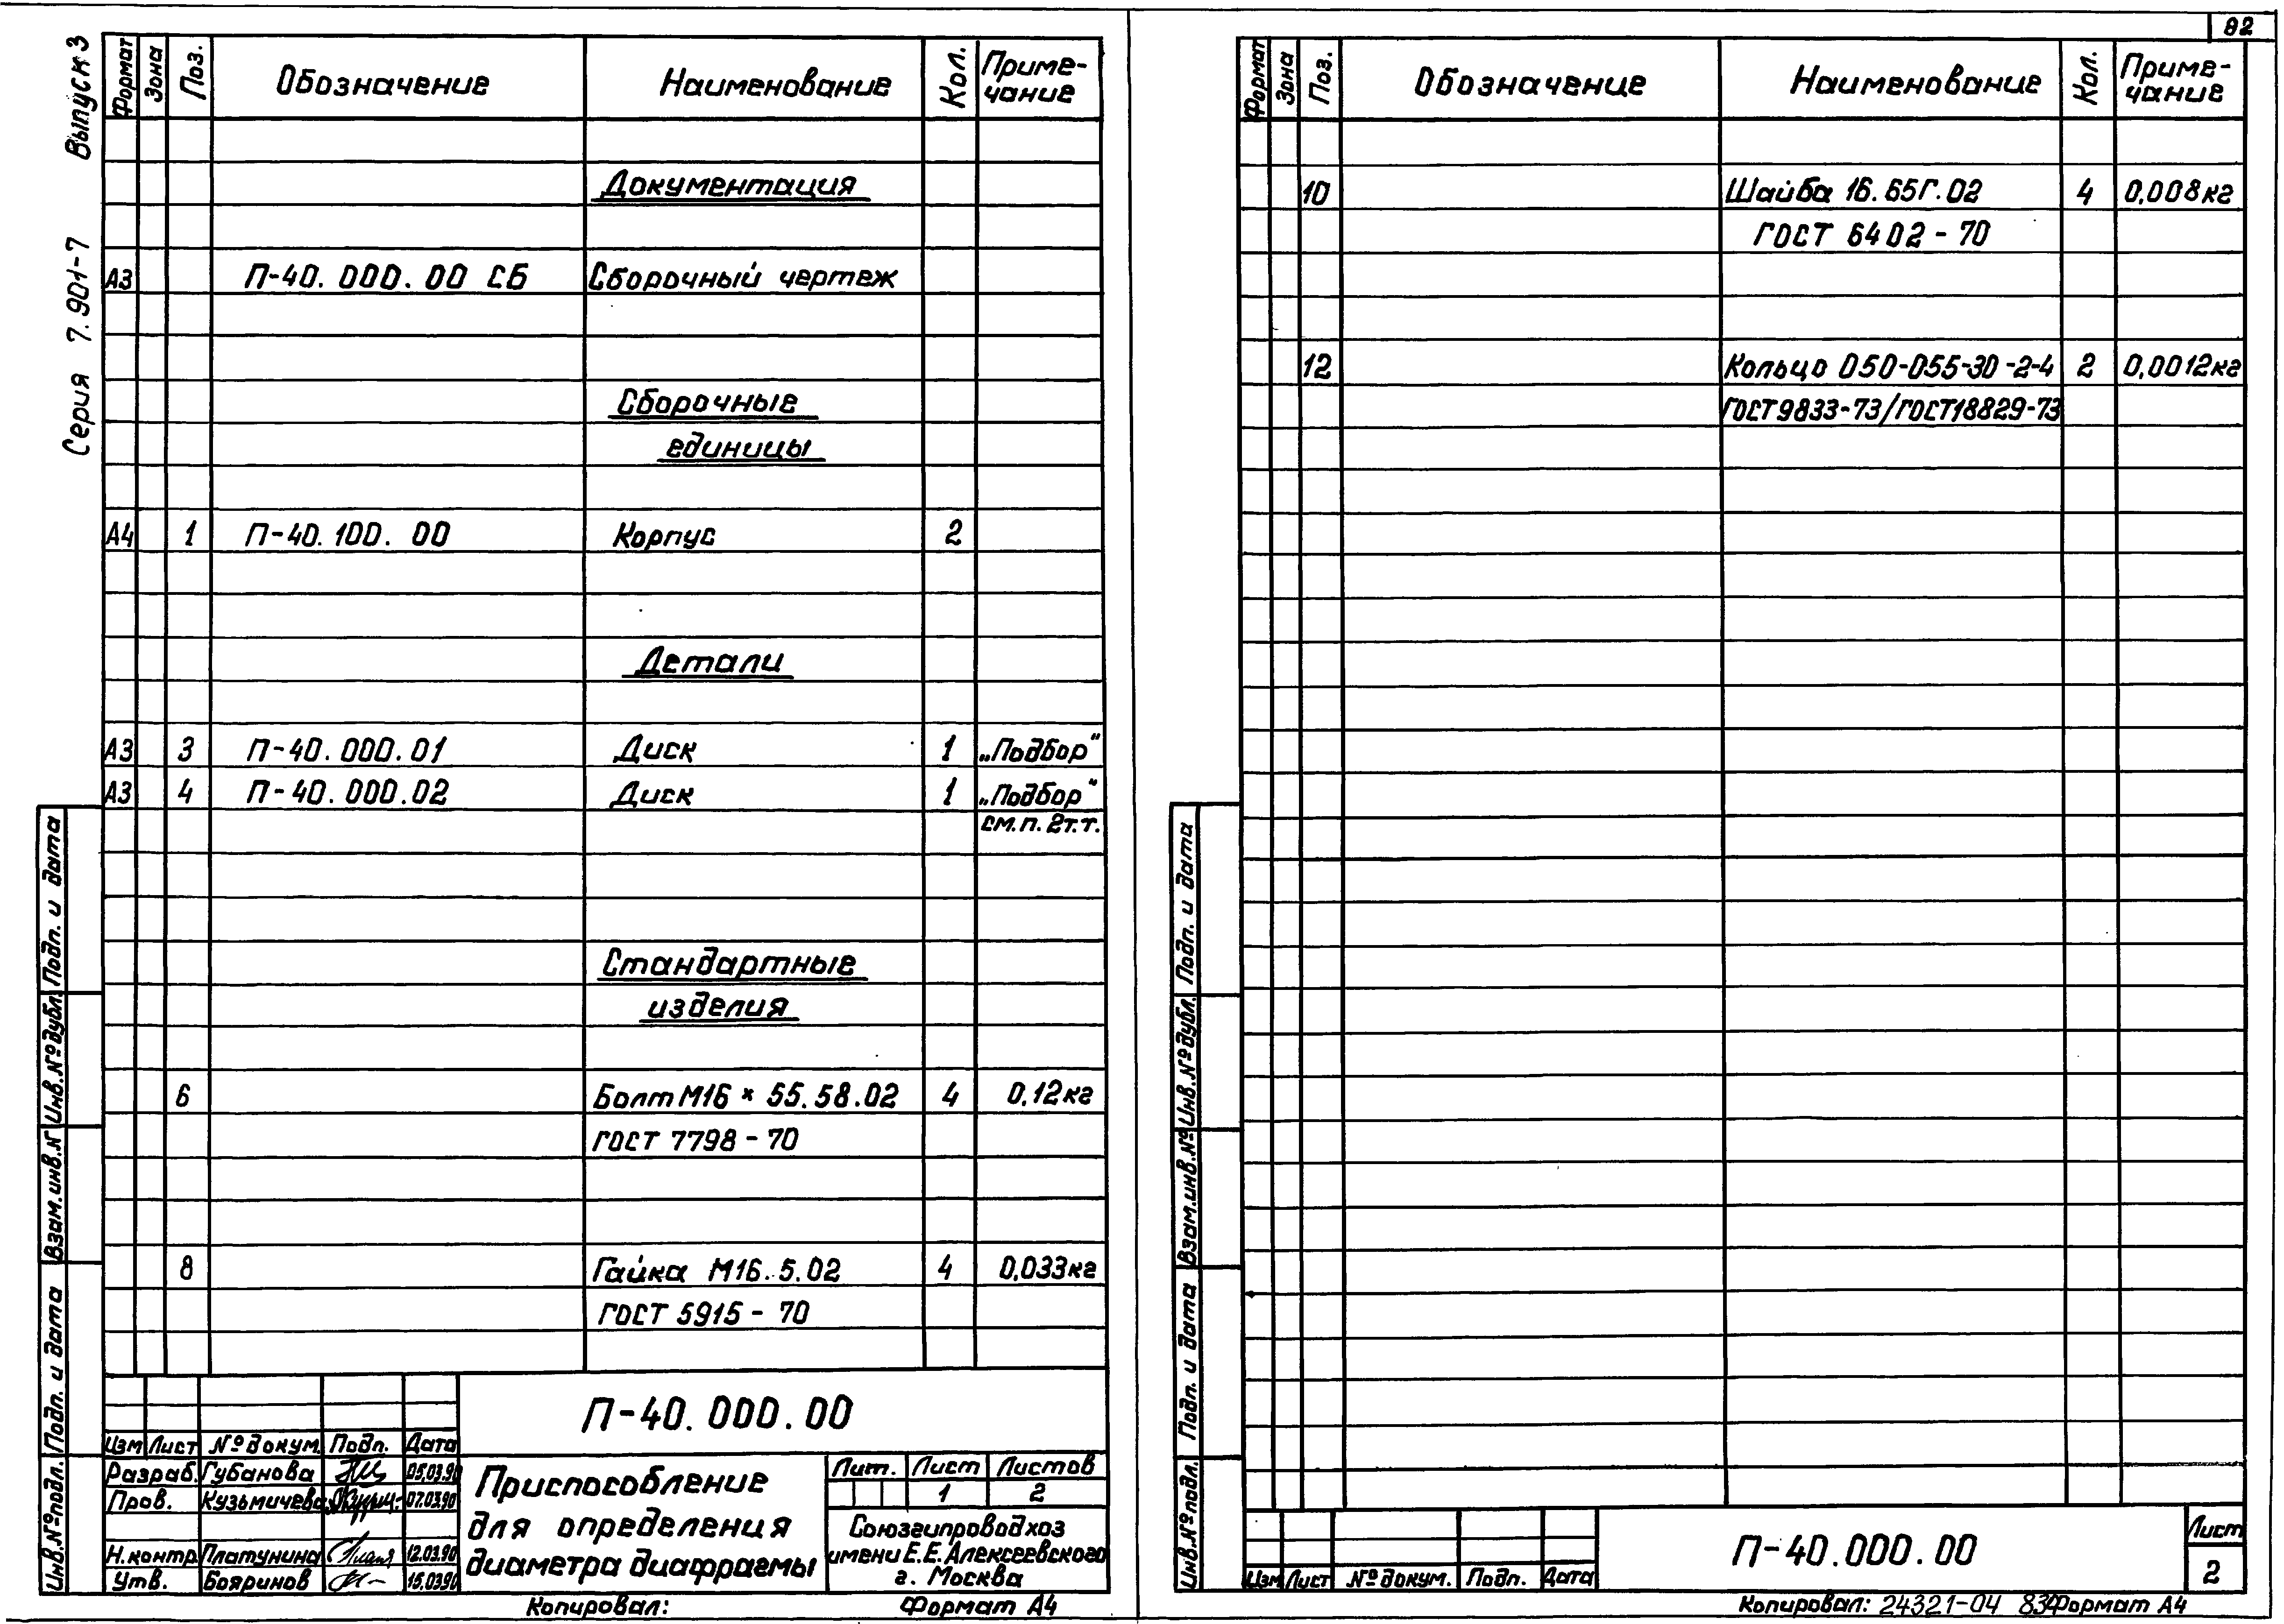 82
Серия 7.901-7 Выпуск 3
Формат Зона Поз. Обозначение Наименование Кол. Приме-чание
Документация
А3 П-40.000.00 СБ Сборочный чертеж
Сборочные
единицы
А4 1 П-40.100.00 Корпус 2
Детали
А3 3 П-40.000.01 Диск 1 „Подбор"
А3 4 П-40.000.02 Диск 1 „Подбор"
см.п. 2т.т.
Стандартные
изделия
6 Болт М16 × 55.58.02 4 0,12кг
ГОСТ 7798-70
8 Гайка М16.5.02 4 0,033кг
ГОСТ 5915-70
Подп. и дата
Инв.№дубл.
Взам.инв.№
Подп. и дата
Инв.№подл.
П-40.000.00
Изм Лист №докум. Подп. Дата
Разраб. Губанова 05.03.90
Пров. Кузьмичева 07.03.90
Н.контр. Платунина 12.03.90
Утв. Бояринов 15.03.90
Приспособление
для определения
диаметра диафрагмы
Лит. Лист Листов
1 2
Союзгипроводхоз
имени Е.Е.Алексеевского
г. Москва
Копировал: Формат А4
Формат Зона Поз. Обозначение Наименование Кол. Приме-чание
10 Шайба 16.65Г.02 4 0,008кг
ГОСТ 6402-70
12 Кольцо 050-055-30-2-4 2 0,0012кг
ГОСТ9833-73/ГОСТ18829-73
Подп. и дата
Инв.№дубл.
Взам.инв.№
Подп. и дата
Инв.№подл.
Изм Лист №докум. Подп. Дата
П-40.000.00
Лист
2
Копировал: 24321-04 83 Формат А4